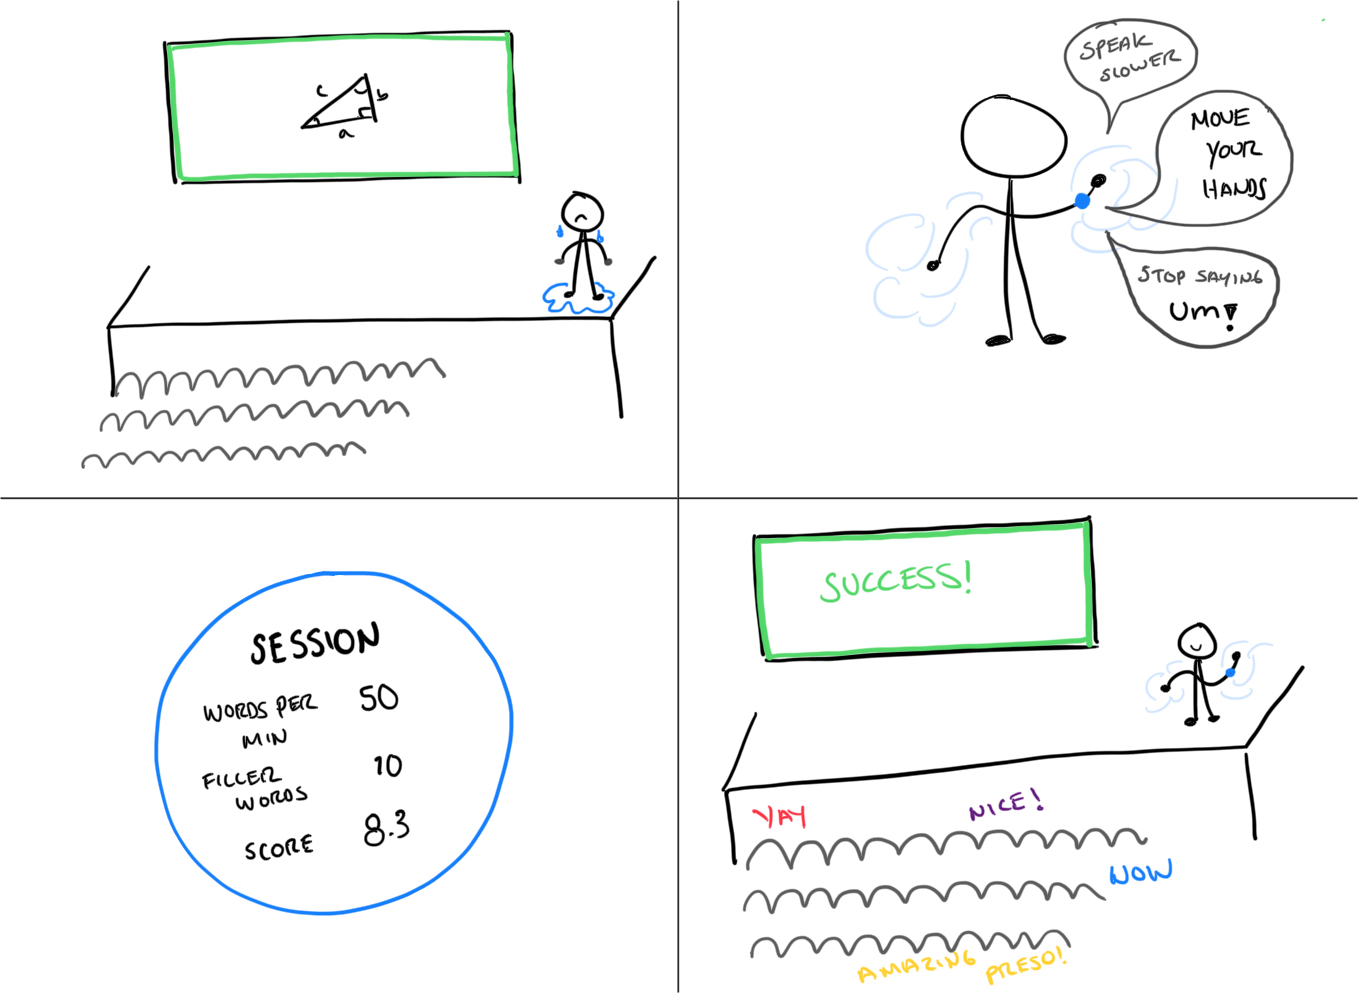 c
b
a
SPEAK
SLOWER
MOVE
YOUR
HANDS
STOP SAYING
Um!
SESSION
WORDS PER
MIN
50
FILLER
WORDS
10
SCORE
8.3
SUCCESS!
YAY
NICE!
WOW
AMAZING PRESO!